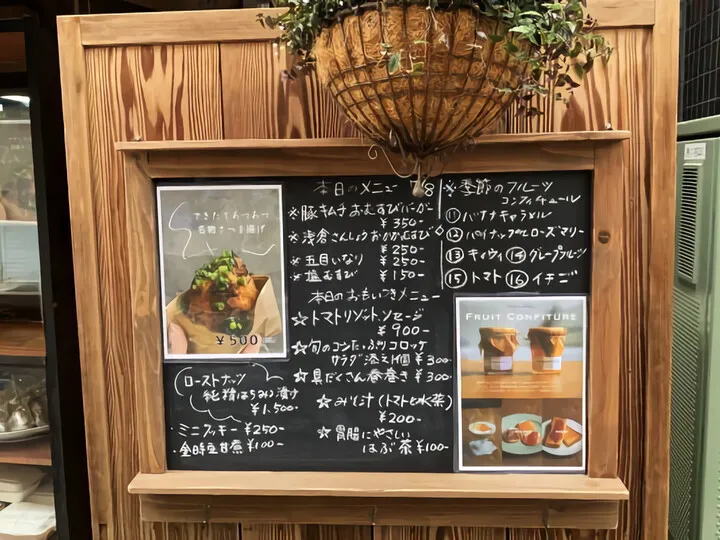 できたてあつあつ
名物さつま揚げ
¥500
ローストナッツ
純精はちみつ漬け
¥1,500-
・ミニクッキー ¥250-
・金時豆甘煮 ¥100-
本日のメニュー 1/8
※豚キムチおむすびバーガー
¥350-
※浅倉さんしょうおかかむすび
¥250-
※五目いなり ¥250-
※塩むすび ¥150-
本日のおもいつきメニュー
☆トマトリゾットソセージ
¥900-
☆旬のコーンたっぷりコロッケ
サラダ添え1個 ¥300-
☆具だくさん春巻き ¥300-
☆みそ汁(トマトと水菜)
¥200-
☆胃腸にやさしい
はぶ茶 ¥100-
※季節のフルーツ
コンフィチュール
⑪バナナキャラメル
⑫パイナップルローズマリー
⑬キウイ ⑭グレープフルーツ
⑮トマト ⑯イチゴ
FRUIT CONFITURE